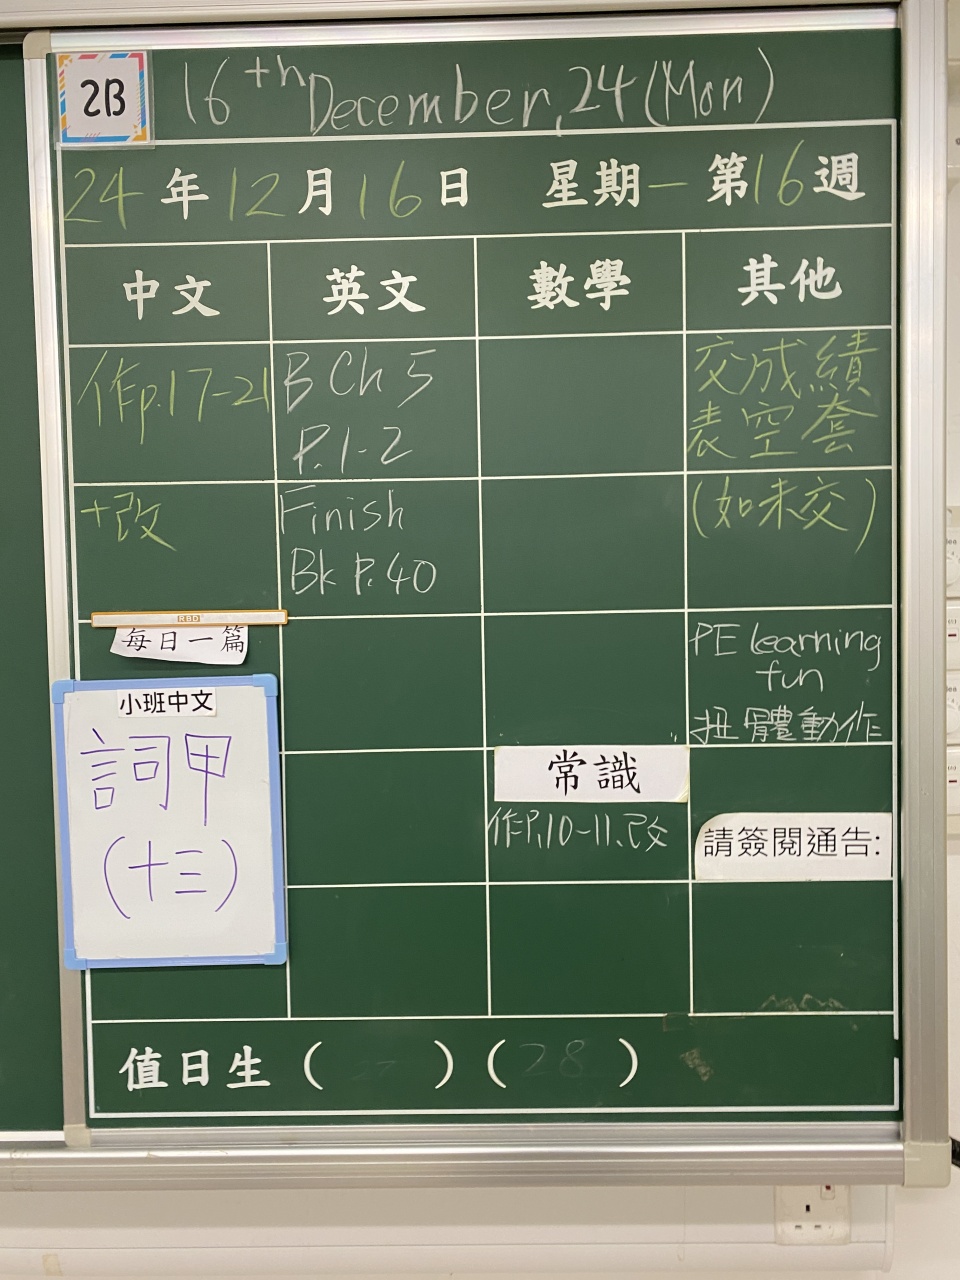 2B
16th December, 24 (Mon)
24年12月16日 星期一 第16週
中文 英文 數學 其他
作p.17-21
+改
每日一篇
小班中文
詞甲
(十三)
B Ch 5
P.1-2
Finish
Bk P.40
常識
作P.10-11、改
交成績
表空套
(如未交)
PE learning
fun
扭體動作
請簽閱通告:
值日生 ( ) ( 28 )